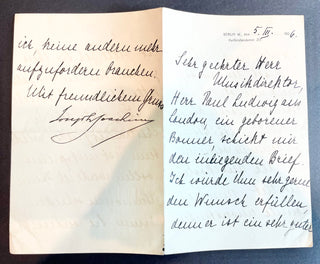 BERLIN W., den 5. III. 6.
Sehr geehrter Herr
Musikdirektor,
Herr Paul Ludwig aus
London, ein geborener
Bonner schickt mir
den inliegenden Brief.
Ich würde Ihm sehr gerne
den Wunsch erfüllen,
denn er ist ein sehr guter
ich, keine andern mehr
aufzufordern brauchen.
Mit freundlichem Gruss
Joseph Joachim